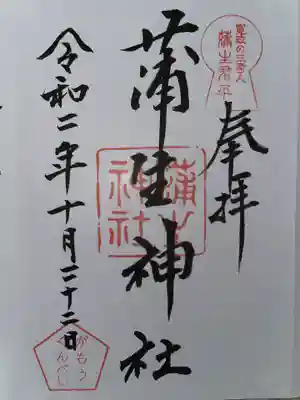 寛政の三奇人
蒲生君平
奉拝
蒲生神社
蒲生
神社
令和二年十月二十二日
がもう
くんぺい